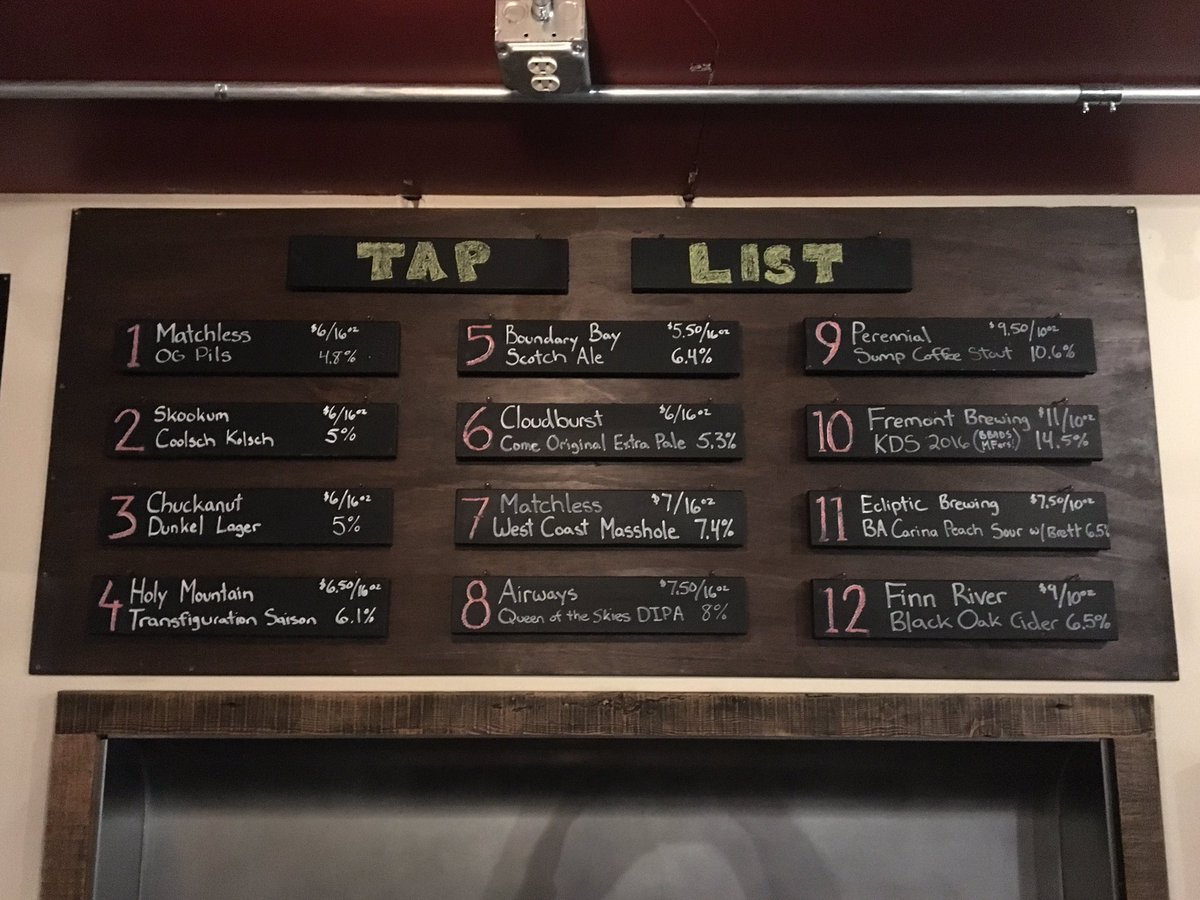 TAP LIST
1 Matchless $6/16oz
OG Pils 4.8%
2 Skookum $6/16oz
Coolsch Kolsch 5%
3 Chuckanut $6/16oz
Dunkel Lager 5%
4 Holy Mountain $6.50/16oz
Transfiguration Saison 6.1%
5 Boundary Bay $5.50/16oz
Scotch Ale 6.4%
6 Cloudburst $6/16oz
Come Original Extra Pale 5.3%
7 Matchless $7/16oz
West Coast Masshole 7.4%
8 Airways $7.50/16oz
Queen of the Skies DIPA 8%
9 Perennial $9.50/10oz
Sump Coffee Stout 10.6%
10 Fremont Brewing $11/10oz
KDS 2016 (BBADS MFers!) 14.5%
11 Ecliptic Brewing $7.50/10oz
BA Carina Peach Sour w/Brett 6.5%
12 Finn River $9/10oz
Black Oak Cider 6.5%